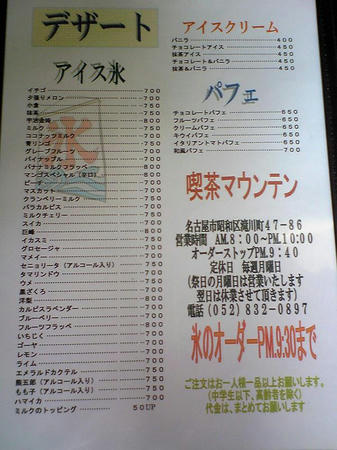 デザート
アイス氷
イチゴ 700
夕張りメロン 700
小倉 700
抹茶 700
宇治金時
ミルク
ココナッツミルク
青リンゴ
グレープフルーツ
パイナップル
バナナミルクフラッペ
マンゴスペシャル(辛口)
ピーチ
マスカット
クランベリーミルク
パラカルピス
ミルクチェリー
スイカ
巨峰
イカスミ
グロセージャ
マメイー
セニョリータ (アルコール入り) 750
タマリンドウ
ウメ
黒ざくろ
洋梨
カルピスラベンダー
ブルーベリー
フルーツフラッペ
いちじく 700
ゴーヤ 700
レモン 700
ライム 700
エメラルドカクテル 750
熊五郎 (アルコール入り) 750
もも子 (アルコール入り) 750
ハマイカ 700
ミルクのトッピング 50UP
氷
アイスクリーム
バニラ 400
チョコレートアイス 450
抹茶アイス 450
チョコレート&バニラ 450
抹茶&バニラ 450
パフェ
チョコレートパフェ 650
フルーツパフェ 650
クリームパフェ 650
キウイパフェ 650
イタリアントマトパフェ 650
和風パフェ 700
喫茶マウンテン
名古屋市昭和区滝川町47-86
営業時間 AM.8:00~PM.10:00
オーダーストップPM.9:40
定休日 毎週月曜日
(祭日の月曜日は営業いたします
翌日は休業させて頂きます)
電話 (052) 832-0897
氷のオーダーPM.9:30まで
ご注文はお一人様一品以上お願いします。
(中学生以下、高齢者を除く)
代金は、まとめてお願いします